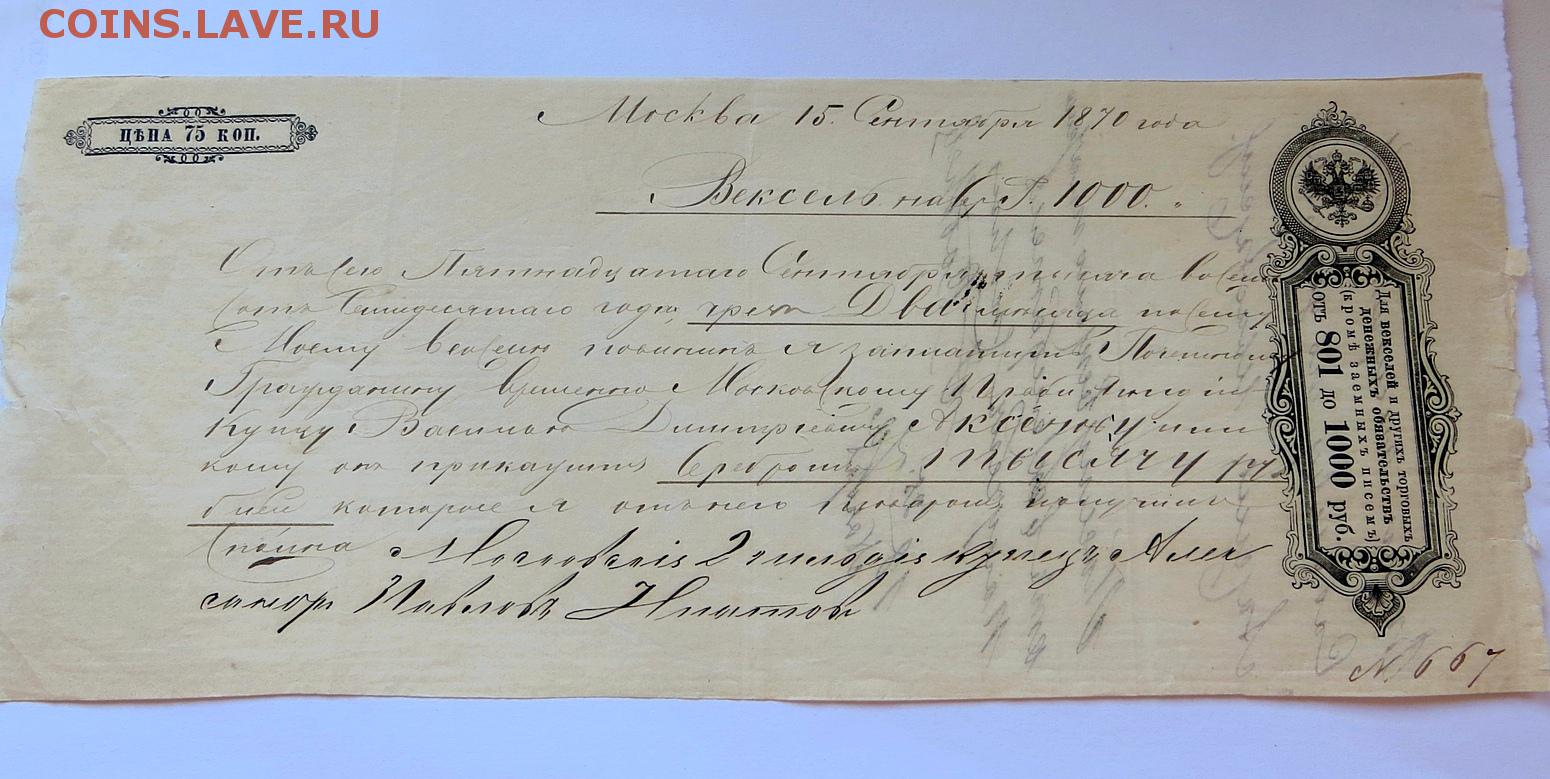 COINS.LAVE.RU
ЦѢНА 75 КОП.
Москва 15. Сентября 1870 года
Вексель на 1000.
Отъ сего Пятнадцатаго Сентября тысяча восем
сотъ Семидесятаго года чрезъ Два по сему
Моему векселю повиненъ я заплатить
Гражданину временно Московскому гильдіи
Купцу Василью Дмитріевичу Аксенову или
кому онъ прикажетъ Серебромъ ТЫСЯЧУ ру
блей которые я отъ него получилъ
сполна Московскій 2 гильдіи купецъ Алек
сандръ Павловъ
Для векселей и другихъ торговыхъ
денежныхъ обязательствъ
(кромѣ заемныхъ писемъ)
отъ 801 до 1000 руб.
№ 667